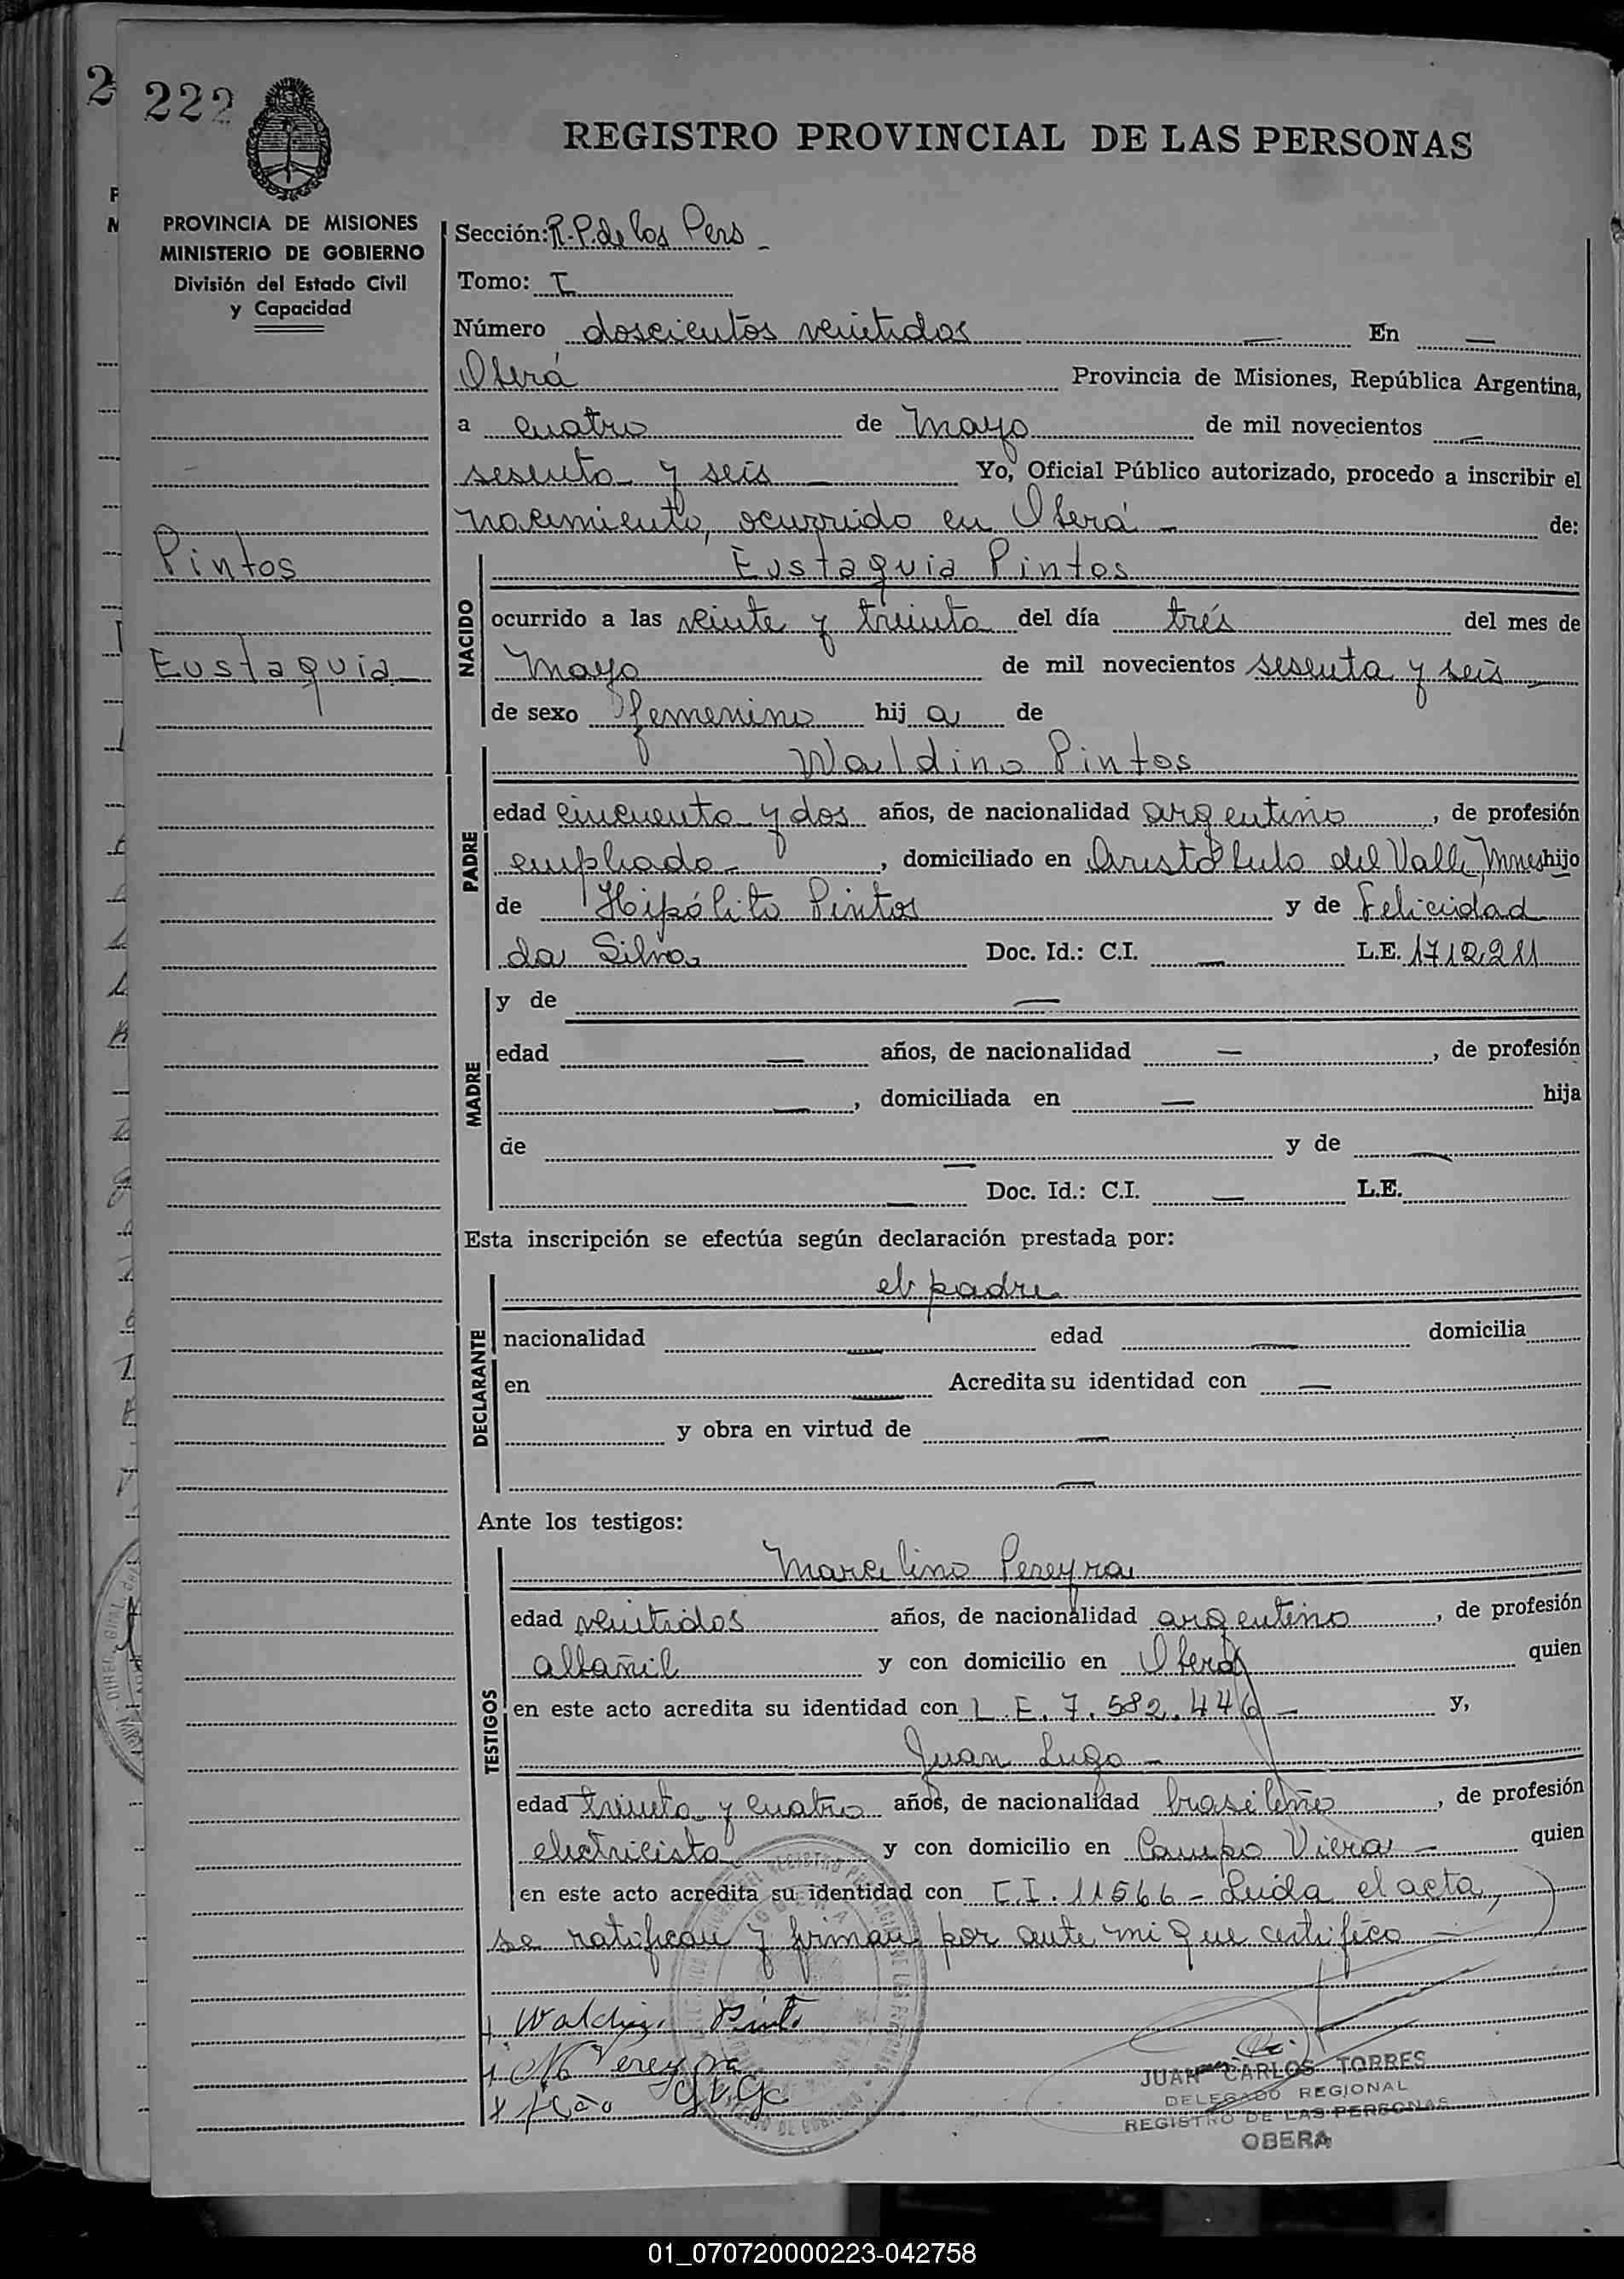 2
222
REGISTRO PROVINCIAL DE LAS PERSONAS
PROVINCIA DE MISIONES
MINISTERIO DE GOBIERNO
División del Estado Civil
y Capacidad
Pintos
Eustaquia
Sección: R.P. de las Pers -
Tomo: I
Número doscientos veintidos — En —
Oberá Provincia de Misiones, República Argentina,
a cuatro de Mayo de mil novecientos —
sesenta y seis — Yo, Oficial Público autorizado, procedo a inscribir el
nacimiento, ocurrido en Oberá — de:
NACIDO
Eustaquia Pintos
ocurrido a las veinte y treinta del día trés del mes de
Mayo de mil novecientos sesenta y seis —
de sexo femenino hij a de
PADRE
Waldino Pintos
edad cincuenta y dos años, de nacionalidad argentino, de profesión
empleado —, domiciliado en Aristóbulo del Valle, Mnes hijo
de Hipólito Pintos y de Felicidad
da Silva Doc. Id.: C.I. — L.E. 1712.211
MADRE
y de —
edad — años, de nacionalidad —, de profesión
—, domiciliada en — hija
de — y de —
— Doc. Id.: C.I. — L.E.
Esta inscripción se efectúa según declaración prestada por:
DECLARANTE
el padre
nacionalidad — edad — domicilia
en — Acredita su identidad con —
y obra en virtud de —
—
Ante los testigos:
TESTIGOS
Marcelino Pereyra
edad veintidos años, de nacionalidad argentino, de profesión
albañil y con domicilio en Oberá quien
en este acto acredita su identidad con L.E. 7.582.446 — y,
Juan Lugo —
edad treinta y cuatro años, de nacionalidad brasileño, de profesión
electricista y con domicilio en Campo Viera — quien
en este acto acredita su identidad con C.I. 11566 - Leída el acta,
se ratifican y firman por ante mi que certifico —
Waldino Pinto
M Pereyra
JUAN CARLOS TORRES
DELEGADO REGIONAL
REGISTRO DE LAS PERSONAS
OBERA
01_070720000223-042758